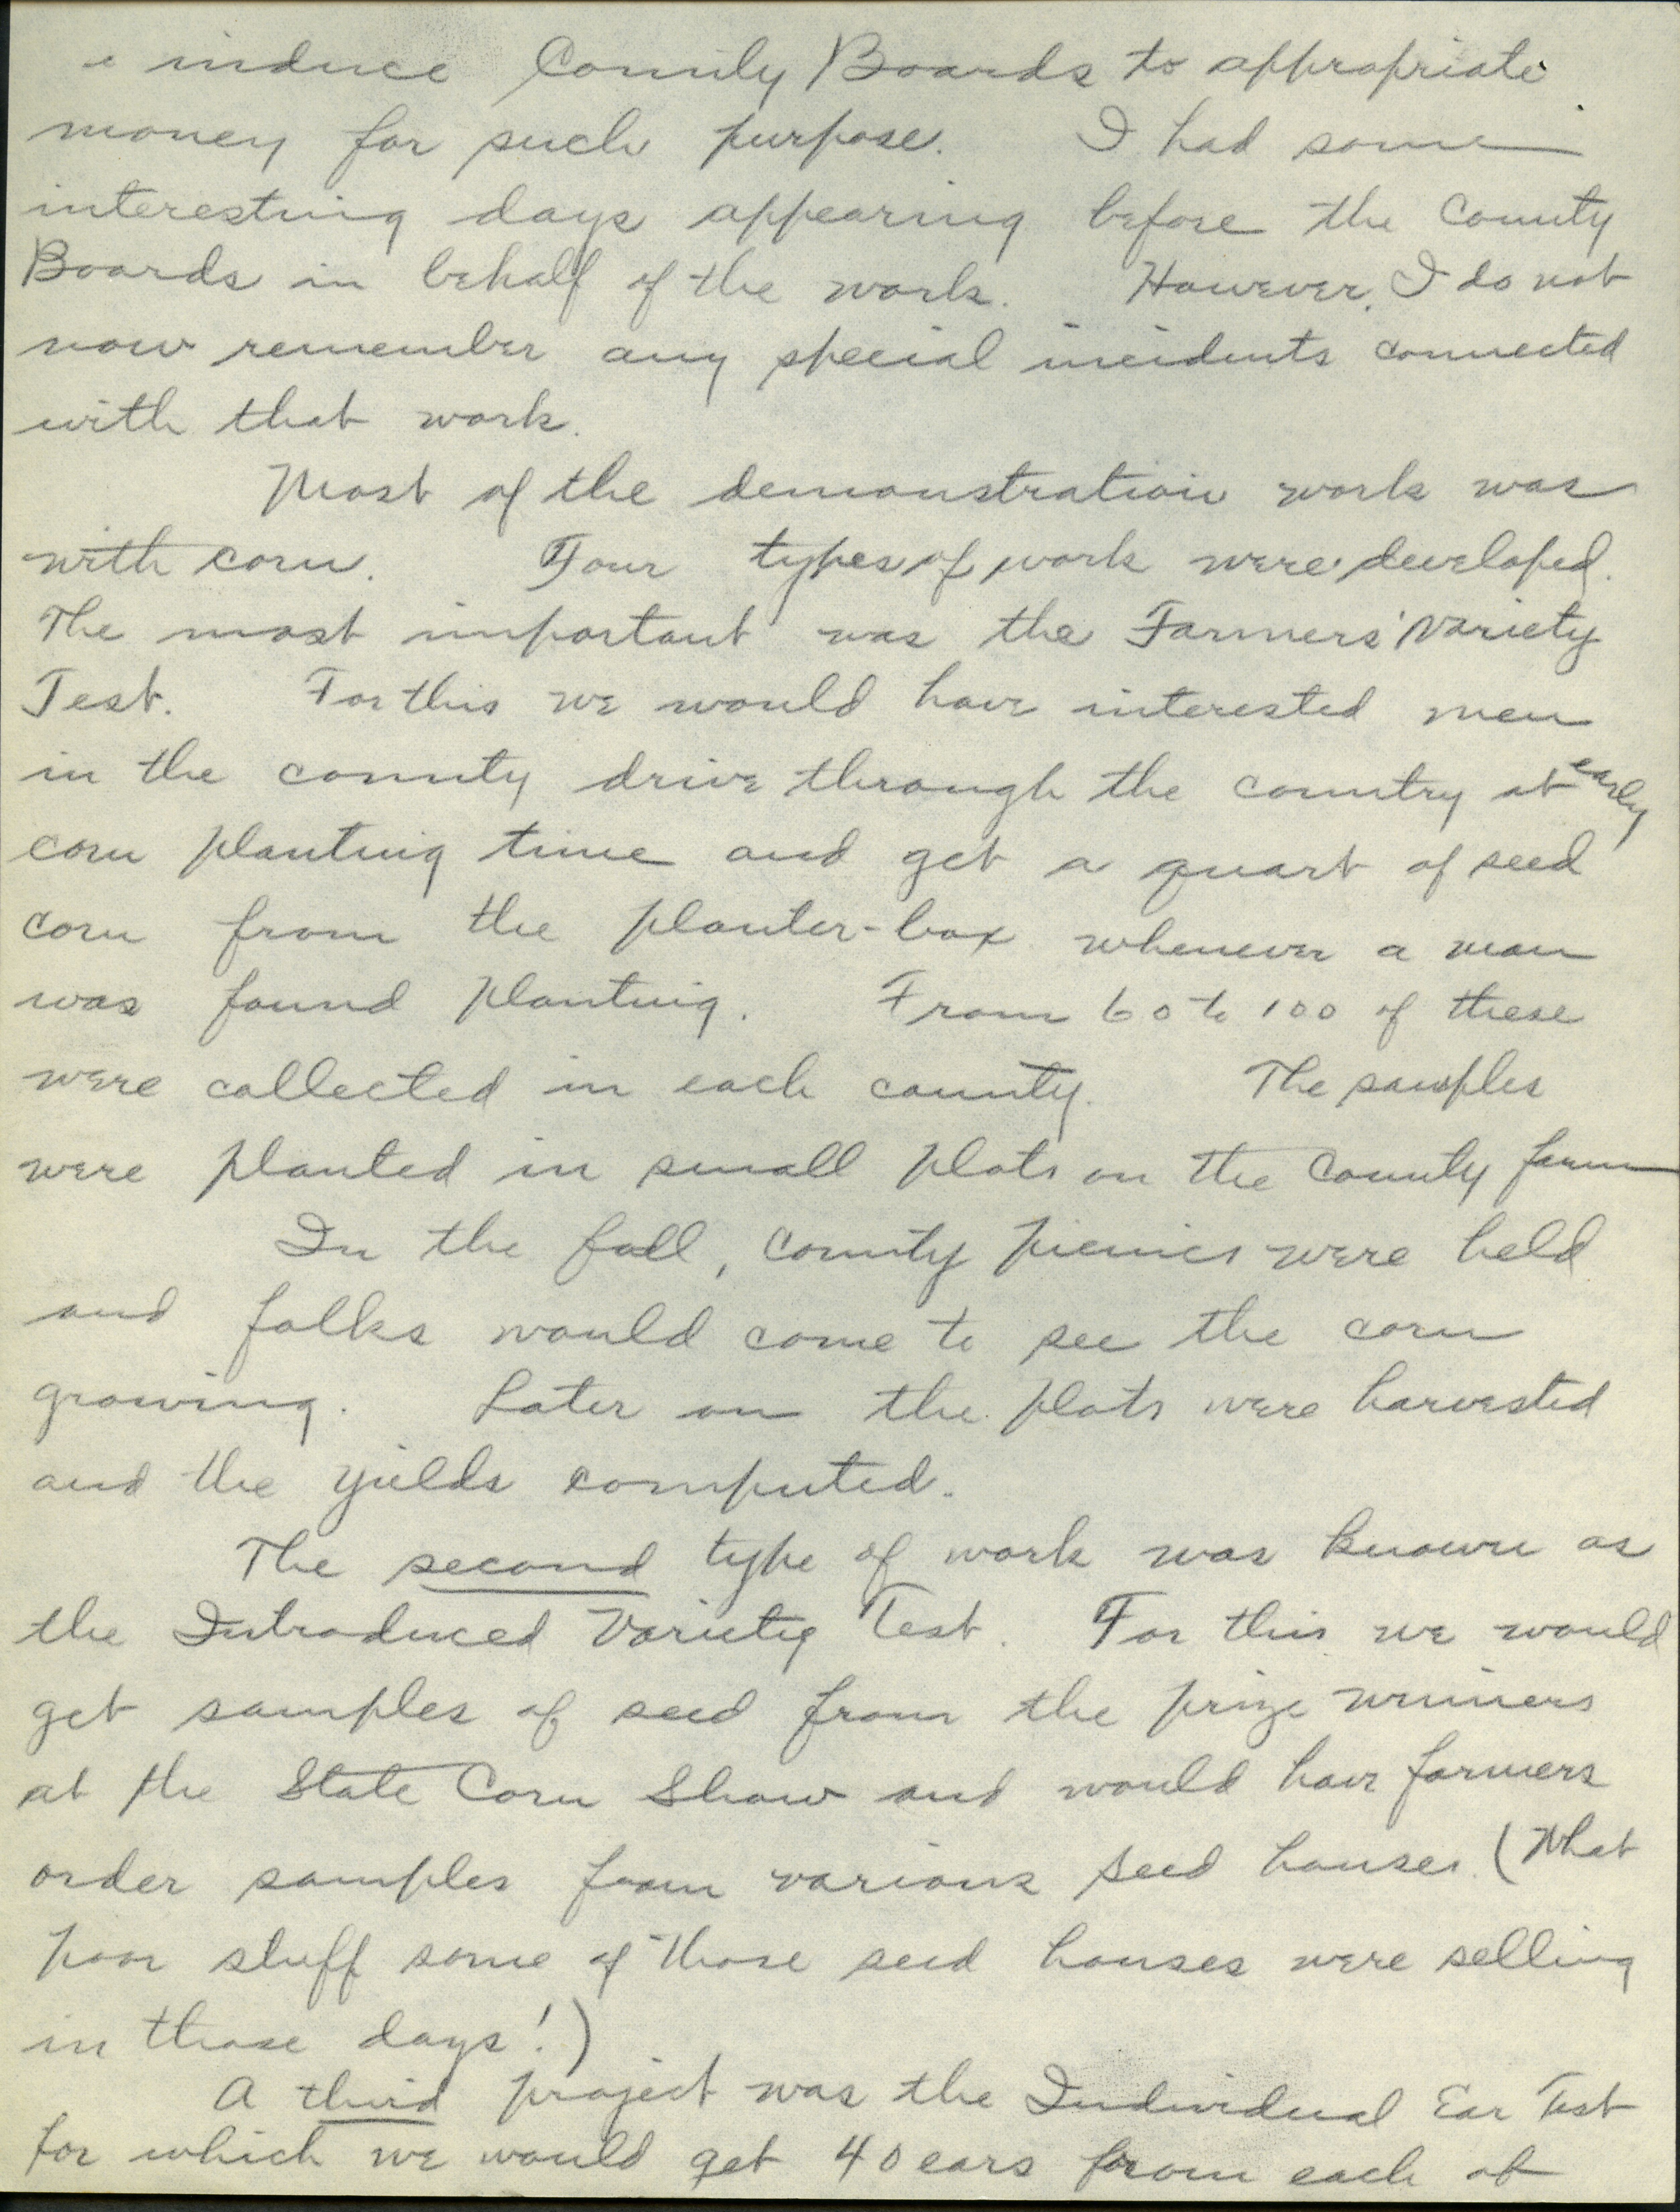 induce County Boards to appropriate
money for such purpose. I had some
interesting days appearing before the County
Boards in behalf of the work. However, I do not
now remember any special incidents connected
with that work.
Most of the demonstration work was
with corn. Four types of work were developed.
The most important was the Farmers' Variety
Test. For this we would have interested men
in the county drive through the country at early
corn planting time and get a quart of seed
corn from the planter-box whenever a man
was found planting. From 60 to 100 of these
were collected in each county. The samples
were planted in small plots on the County farm
In the fall, county picnics were held
and folks would come to see the corn
growing. Later on the plots were harvested
and the yields computed.
The second type of work was known as
the Introduced Variety Test. For this we would
get samples of seed from the prize winners
at the State Corn Show and would have farmers
order samples from various seed houses. (What
poor stuff some of those seed houses were selling
in those days!)
A third project was the Individual Ear Test
for which we would get 40 ears from each of